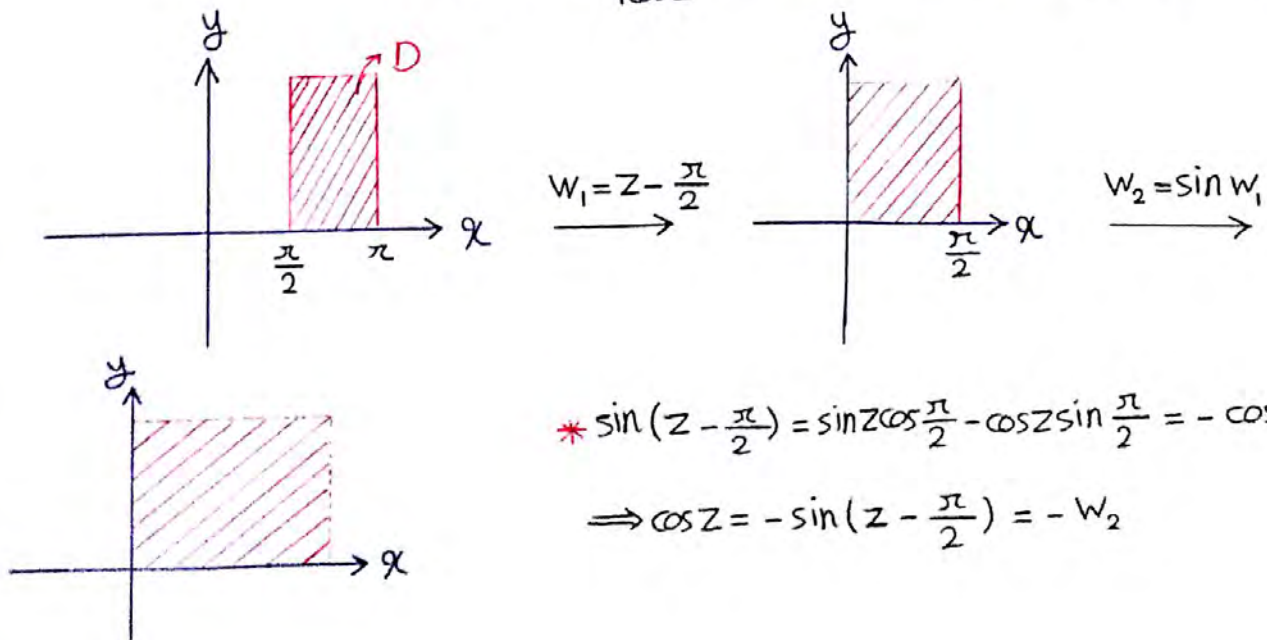 y
D
x
π/2
π
W₁ = Z - π/2
y
x
π/2
W₂ = sin W₁
y
x
* sin(Z - π/2) = sinZcos π/2 - cosZsin π/2 = - cos
⟹ cosZ = - sin(Z - π/2) = - W₂